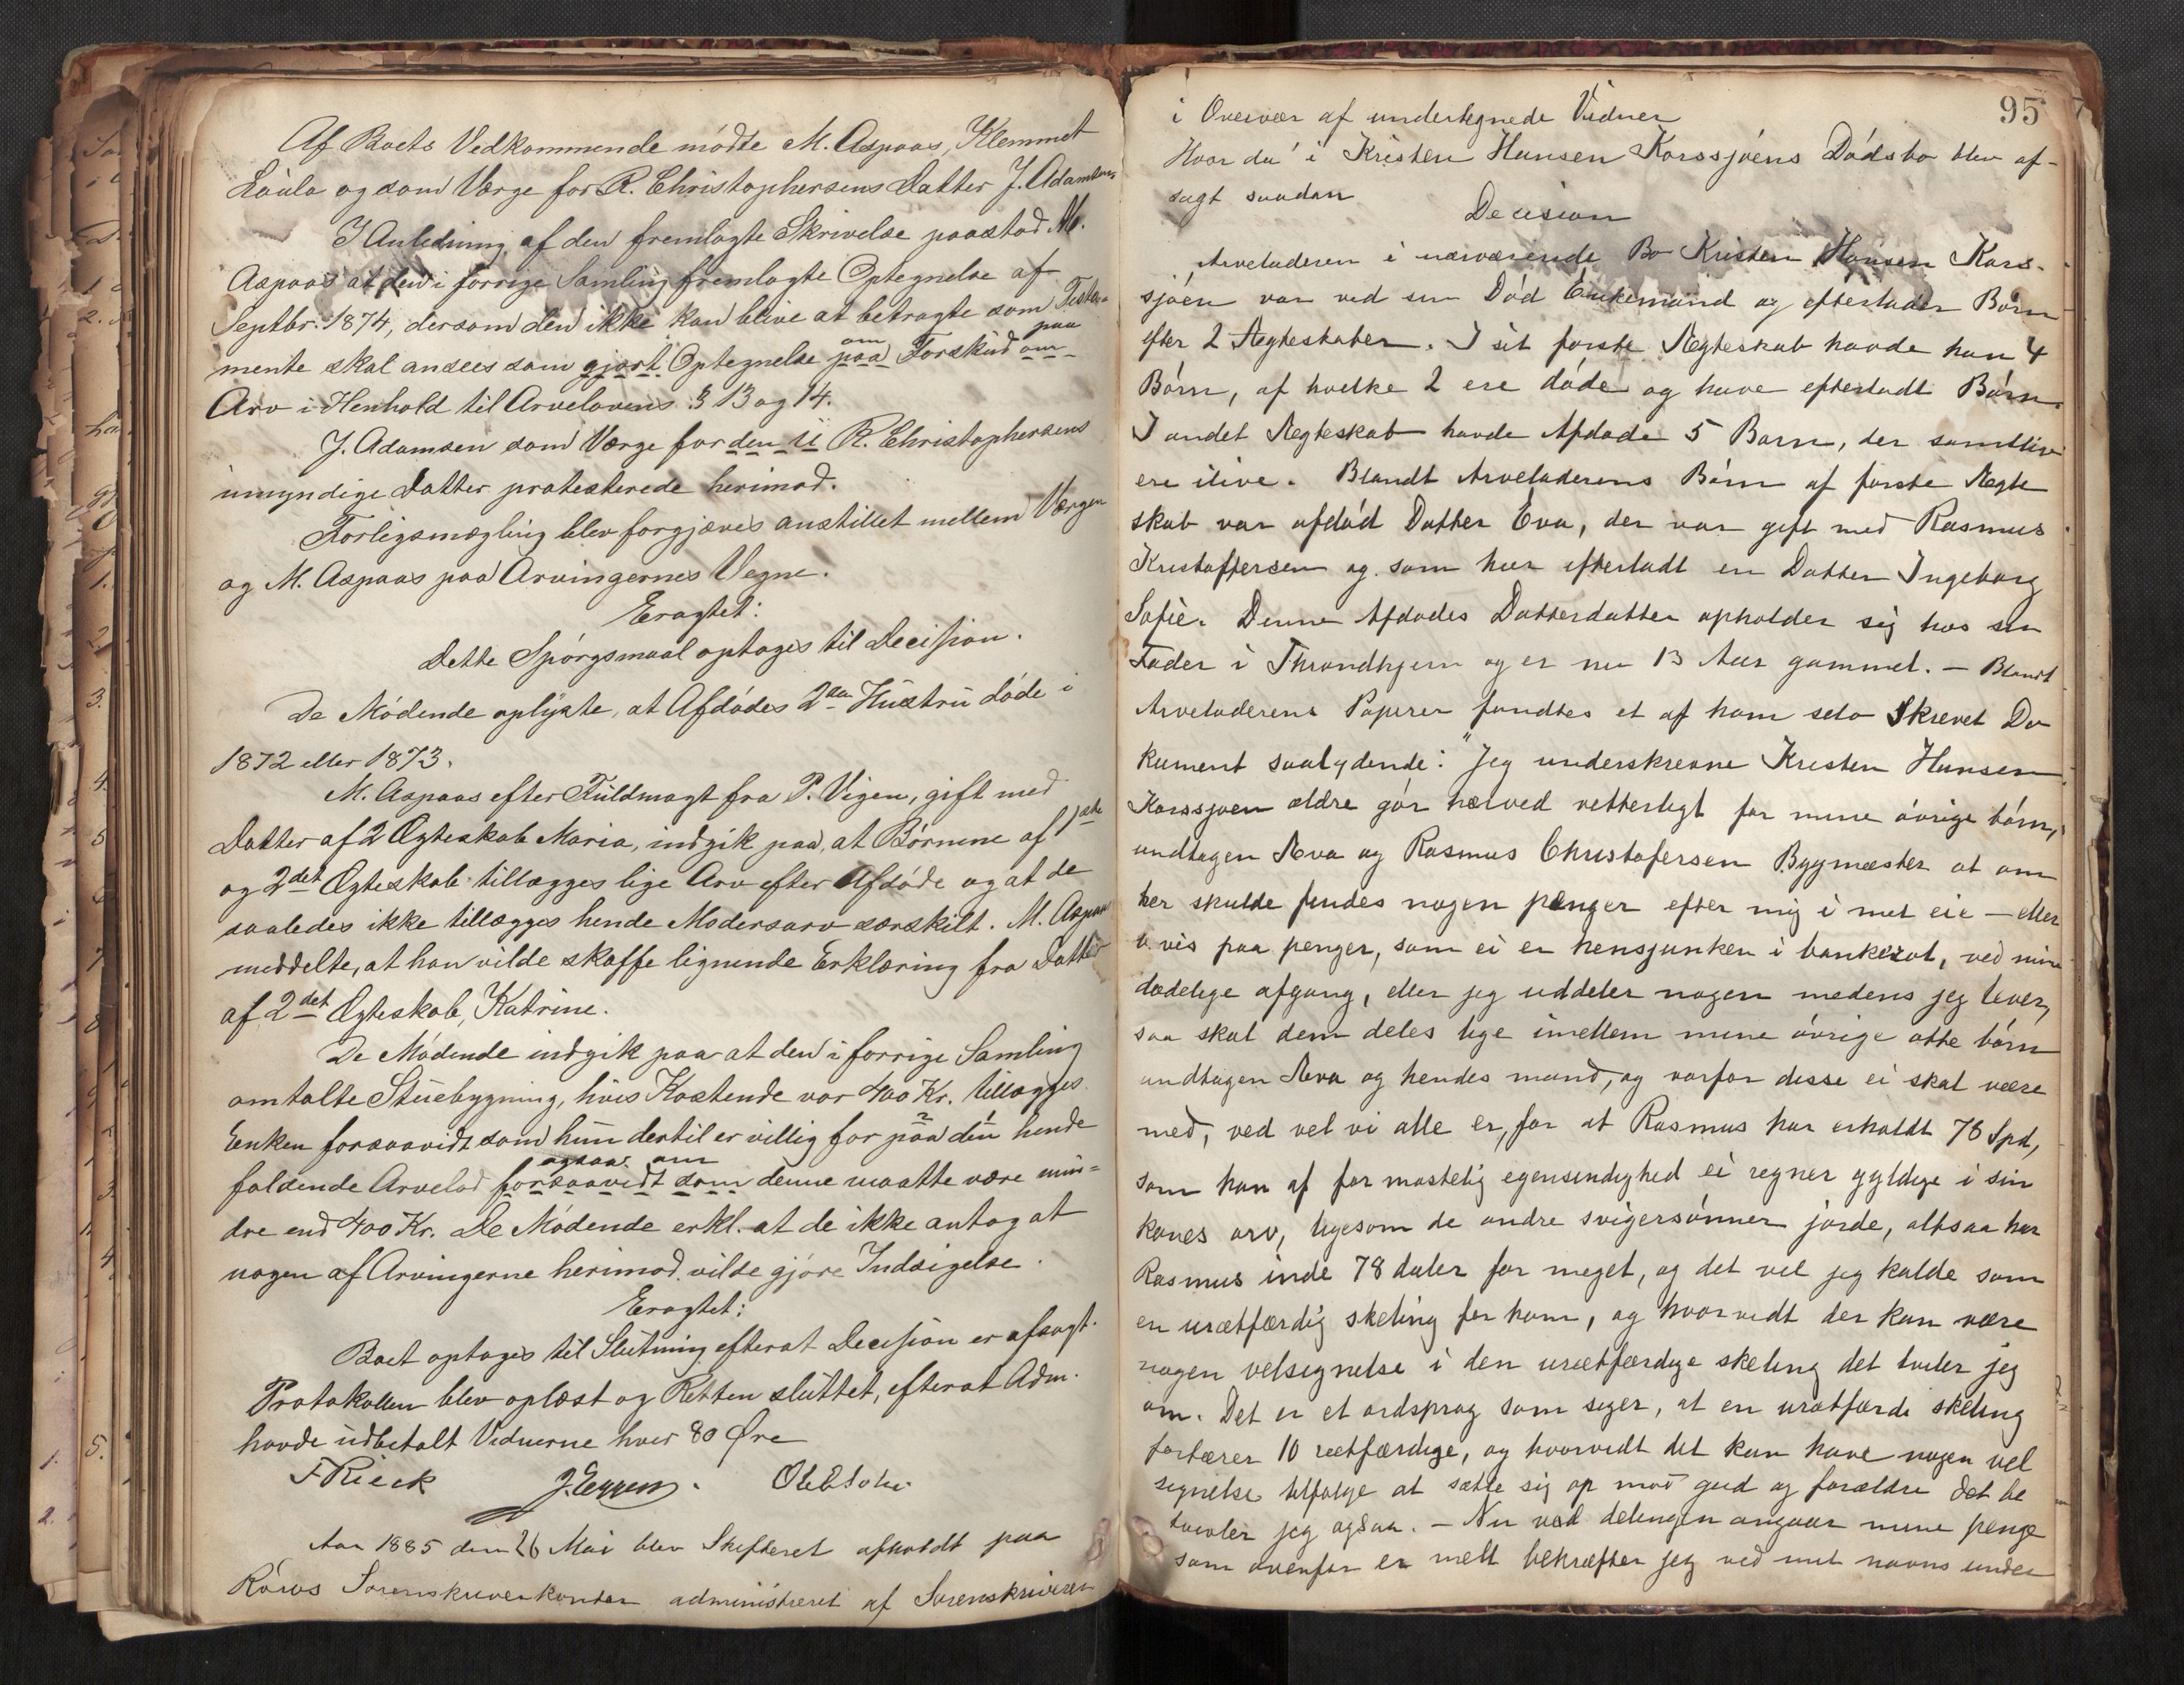 Af Boets Vedkommende mödte M. Aspaas, Klemmet
og som Værge for R. Christophersens Datter J. Adamsen
I Anledning af den fremlagte Skrivelse paastod M.
Aspaas at den i forrige Samling fremlagte Optegnelse af
Septbr. 1874, dersom den ikke kan blive at betragte som Testa-
mente skal ansees som gjort Optegnelse paa om Forskud om paa
Arv i Henhold til Arvelovens § 13 og 14.
J. Adamsen som Værge for den u R. Christophersens
umyndige Datter protesterede herimod.
Forligsmægling blev forgjæves anstillet mellem Værgen
og M. Aspaas paa Arvingernes Vegne.
Eragtet:
Dette Spörgsmaal optages til Decision.
De Mödende oplyste, at Afdödes 2den Hustru döde i
1872 eller 1873.
M. Aspaas efter Fuldmagt fra P. Vigen, gift med
Datter af 2 Ægteskab Maria, indgik paa, at Börnene af 1ste
og 2det Ægteskab tillægges lige Arv efter Afdöde og at de
saaledes ikke tillægges hende Modersarv særskilt. M. Aspaas
meddelte, at han vilde skaffe lignende Erklæring fra Datter
af 2det Ægteskab, Katrine.
De Mödende indgik paa at den i forrige Samling
omtalte Stuebygning, hvis Kostende var 400 Kr. tillægges
Enken forsaavidt som hun dertil er villig for paa den hende
faldende Arvelod forsaavidt som ogsaa om denne maatte være min=
dre end 400 Kr. De Mödende erkl. at de ikke antog at
nogen af Arvingerne herimod vilde gjöre Indsigelse.
Eragtet:
Boet optages til Slutning efterat Decision er afsagt.
Protokollen blev oplæst og Retten sluttet, efterat Adm.
havde udbetalt Vidnerne hver 80 Øre
F Rieck J. Eggen.
Aar 1885 den 26 Mai blev Skifteret afholdt paa
Röros Sorenskriverkontor administreret af Sorenskriveren
95
i Overvær af undertegnede Vidner
Hvor da i Kristen Hansen Korssjöens Dödsbo blev af-
sagt saadan
Decision
Arveladeren i nærværende Bo Kristen Hansen Kors-
sjöen var ved sin Död Enkemand og efterlader Börn
efter 2 Ægteskaber. I sit förste Ægteskab havde han 4
Börn, af hvilke 2 ere döde og have efterladt Börn.
I andet Ægteskab havde Afdöde 5 Börn, der samtlige
ere ilive. Blandt Arveladerens Börn af förste Ægte
skab var afdöd Datter Eva, der var gift med Rasmus
Kristoffersen og som har efterladt en Datter Ingeborg
Sofie. Denne Afdödes Datterdatter opholder sig hos sin
Fader i Throndhjem og er nu 13 Aar gammel. — Blandt
Arveladerens Papirer fandtes et af ham selv Skrevet Do
kument saalydende: "Jeg underskrevne Kristen Hansen
Korssjoen ældre gör herved vetterligt for mine övrige börn,
undtagen Æva og Rasmus Christofersen Bygmester at om
her skulde findes nogen penger efter mig i mit eie — eller
bevis paa penger, som ei er hensjunken i bankerot, ved min
dødelige afgang, eller jeg uddeler nogen medens jeg lever,
saa skal dem deles lige imellem mine övrige otte börn
undtagen Æva og hendes mand, og varfor disse ei skal være
med, ved vel vi alle er, for at Rasmus har erholdt 78 Spd,
som han af for mastelig egensindighed ei regner gyldige i sin
kones arv, ligesom de andre svigersönner jorde, altsaa har
Rasmus inde 78 daler for meget, og det vil jeg kalde som
en urætfærdig skeling for ham, og hvorvidt der kan være
nogen velsignelse i den urætfærdige skeling det tviler jeg
om. Det er et ordsprog som siger, at en urætfærdi skeling
fortærer 10 rætfærdige, og hvorvidt det kan have nogen vel
signelse tilfølge at sætte sig op mod gud og forældre det be
tvivler jeg ogsaa. — Nu vad delingen angaar mine penge
som ovenfor er melt bekræfter jeg ved mit navns under